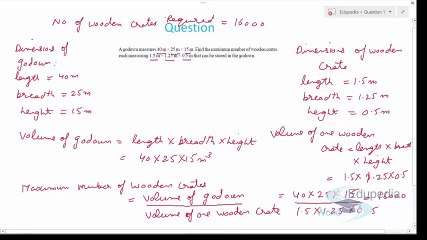 Edupedia > Question 1
No of wooden Crates Required = 16000
Question
A godown measures 40 m × 25 m × 15 m. Find the maximum number of wooden crates
each measuring 1.5 m × 1.25 m × 0.5 m that can be stored in the godown.
Dimensions of
godown:
length = 40m
breadth = 25m
height = 15m
Dimensions of wooden
Crate
length = 1.5m
breadth = 1.25m
height = 0.5m
Volume of godown = length × breadth × height
= 40×25×15 m³
Volume of one wooden
Crate = length ×
× height
= 1.5×1.25×0.5
Maximum Number of wooden Crates
= Volume of godown
Volume of one wooden Crate
= 40×25×15
1.5×1.25×0.5
Edupedia